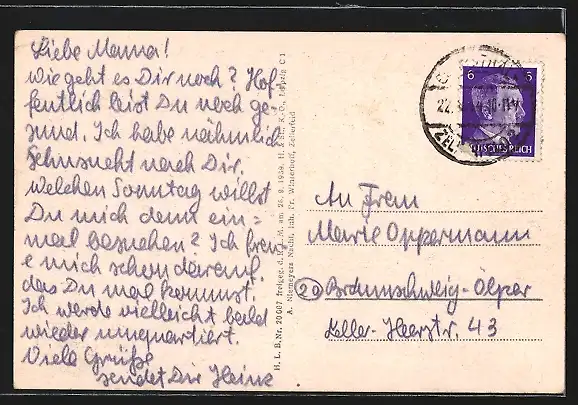 Liebe Mama!
Wie geht es Dir noch? Hof-
fentlich bist Du noch ge-
sund. Ich habe nähmlich
Sehnsucht nach Dir.
Welchen Sonntag willst
Du mich denn ein=
mal besuchen? Ich freu
e mich schon darauf,
das Du mal kommst.
Ich werde vielleicht bald
wieder umquartiert.
Viele Grüße
sendet Dir Heinz
H. L. B. Nr. 20 607 freigeg. d. R. L. M. am 26. 9. 1939. H. & St. K.-G., Leipzig C 1
A. Niemeyers Nachf. Inh. Fr. Winterhoff, Zellerfeld
6 6
DEUTSCHES REICH
22.
An Frau
Marie Oppermann
20 Braunschweig-Ölper
Celler-Heerstr. 43